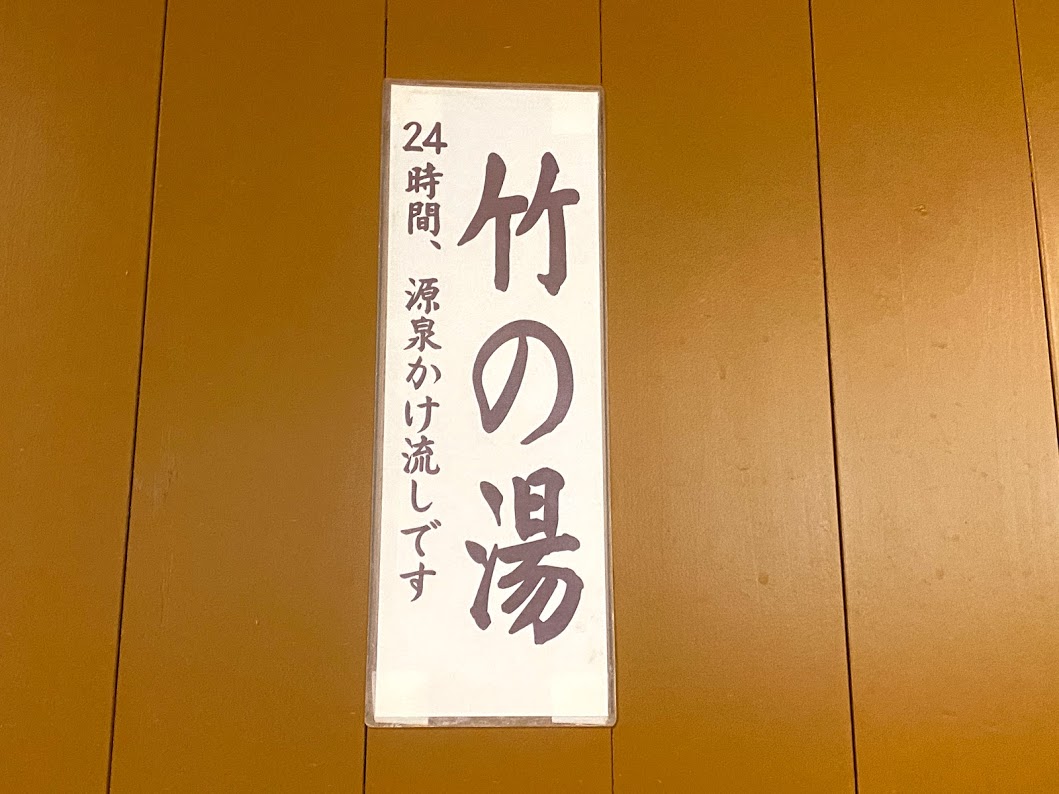 竹の湯
24時間、源泉かけ流しです